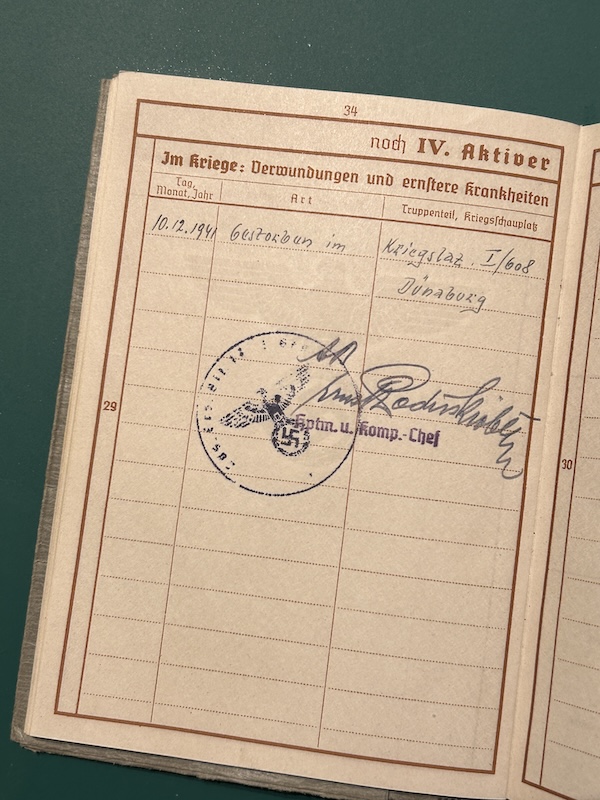 34
noch IV. Aktiver
Im Kriege: Verwundungen und ernstere Krankheiten
Tag, Monat, Jahr
Art
Truppenteil, Kriegsschauplatz
10.12.1941 Gestorben im Kriegslaz. I/608
Dünaburg
29
Hptm. u. Komp.-Chef
30